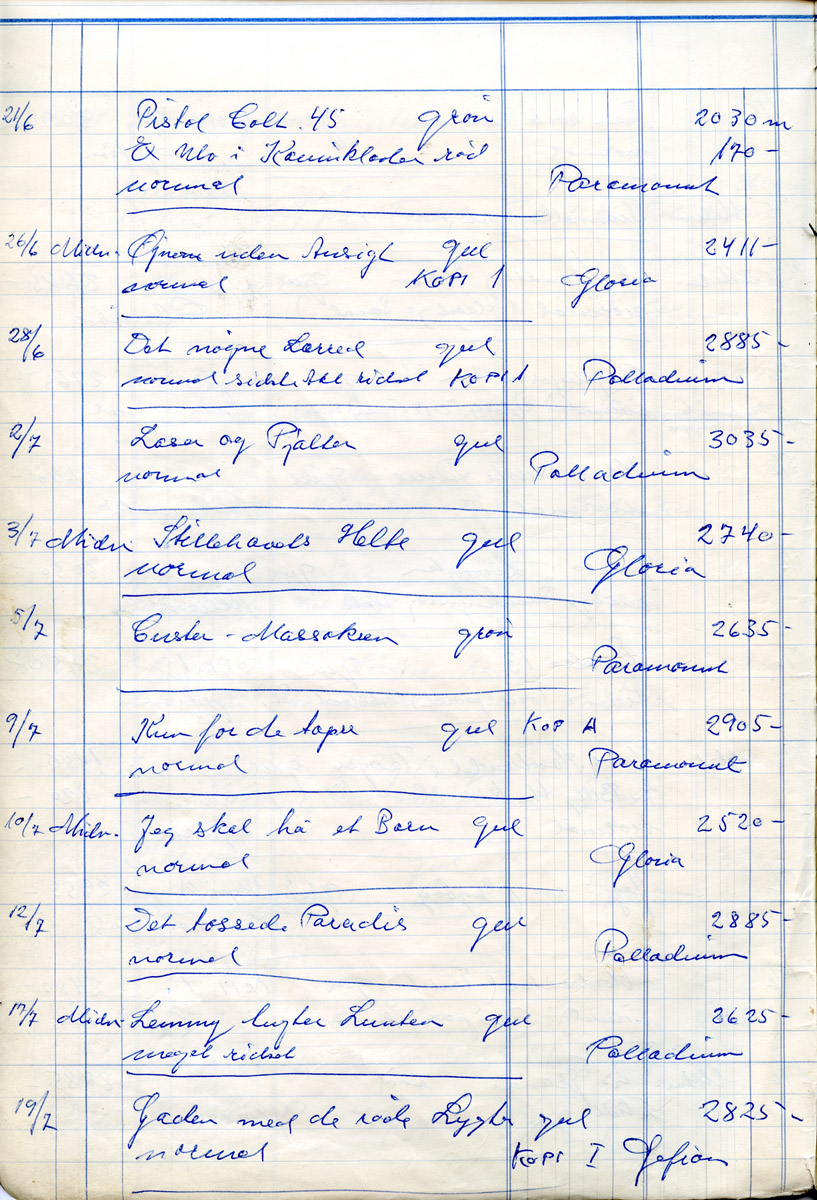 21/6 Pistol Colt .45 grøn 2030 m
Ulv i rød 170-
normal Paramount
26/6 Midn. Øjnene uden Ansigt gul 2411-
normal KOPI 1 Gloria
28/6 Det nøgne Lærred gul 2885-
normal sidste Akt ridset KOPI 1 Palladium
2/7 Laser og Pjalter gul 3035-
normal Palladium
3/7 Midn. Stillehavets Helte gul 2740-
normal Gloria
5/7 Custer-Massakren grøn 2635-
Paramount
9/7 Kun for de tapre gul KOPI A 2905-
normal Paramount
10/7 Midn. Jeg skal ha et Barn gul 2520-
normal Gloria
12/7 Det tossede Paradis gul 2885-
normal Palladium
17/7 Midn. Lemmy lugter Lunten gul 2625-
meget ridset Palladium
19/7 Gaden med de røde Lygter gul 2825-
normal KOPI I Gefion